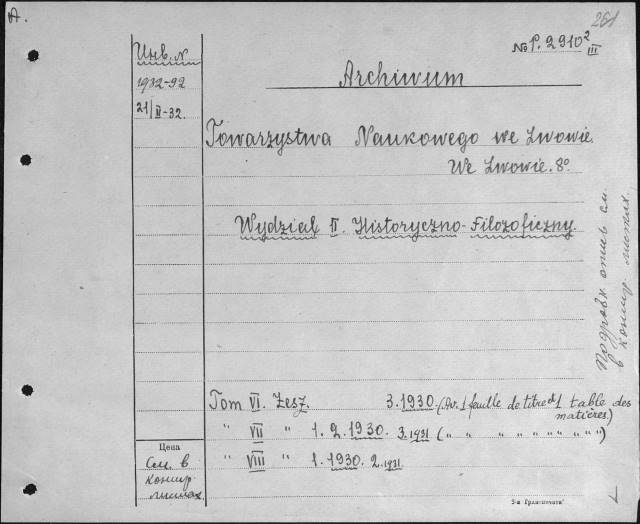 A.
261
№ P. 2910² III
Инв. №
1932-92
21/II-32.
Archiwum
Towarzystwa Naukowego we Lwowie.
We Lwowie. 8°
Wydział II. Historyczno-Filozoficzny.
Подробн. опись см.
в контр. листах.
Tom VI. Zesz. 3.1930. (Av. 1 feuille de titre et 1 table des
matières)
" VII " 1. 2. 1930. 3. 1931 ( " " " " " " " " )
" VIII " 1. 1930. 2. 1931.
Цена
См. в
контр.
листах.